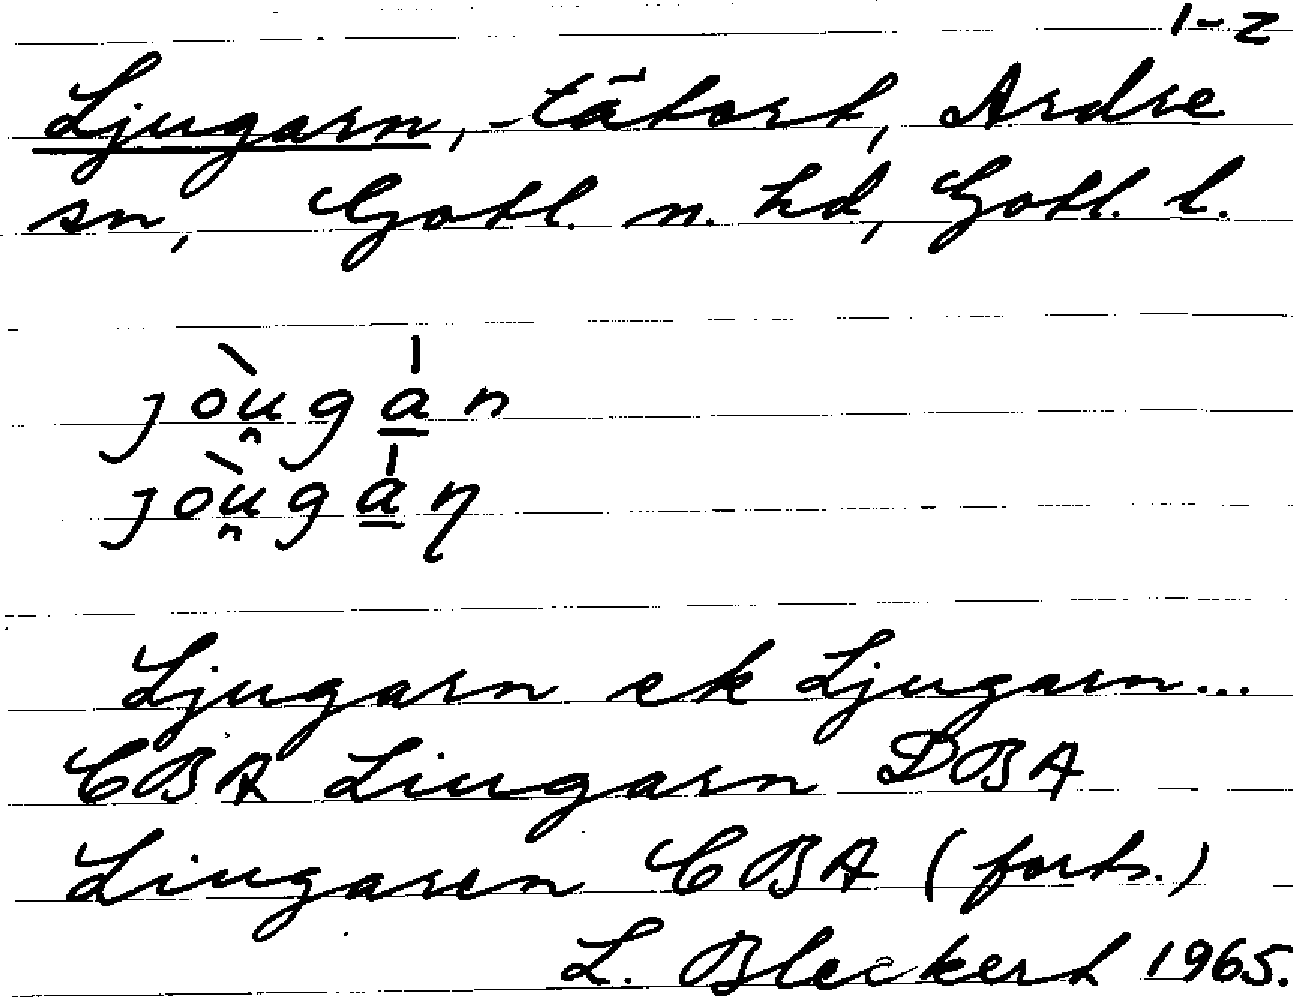 1-2
Ljugarn, tätort, Ardre
sn, Gotl. n. hd, Gotl. l.
jòu̯ga̲̍n
jòu̯ga̲̍ɳ
Ljugarn ek Ljugarn...
CBA Liugarn DBA
Liugaren CBA (forts.)
L. Bleckert 1965.